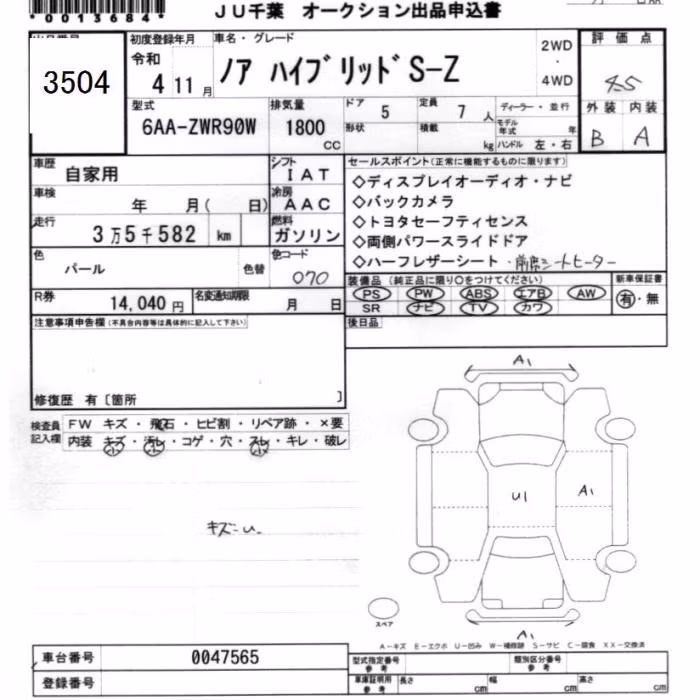 *0013684*
JU千葉 オークション出品申込書
3504
初度登録年月
令和
4 11月
車名・グレード
ノア ハイブリッドS-Z
2WD
・
4WD
評価点
4.5
外装 内装
B A
型式
6AA-ZWR90W
排気量
1800
CC
ドア 5
形状
定員 7 人
積載 kg
ディーラー・並行
モデル年式 年
ハンドル 左・右
車歴 自家用
車検 年 月( 日)
走行 3万5千582 km
シフト
IAT
冷房
AAC
燃料
ガソリン
色 パール 色替
色コード
070
R券 14,040円
名変通知期限 月 日
セールスポイント(正常に機能するものに限ります)
◇ディスプレイオーディオ・ナビ
◇バックカメラ
◇トヨタセーフティセンス
◇両側パワースライドドア
◇ハーフレザーシート・前席シートヒーター
装備品(純正品に限り〇をつけてください)
PS PW ABS エアB AW
SR ナビ TV カワ
新車保証書
有・無
後日品
注意事項申告欄(不具合内容等は具体的に記入して下さい)
修復歴 有〔箇所 〕
検査員
記入欄
FW キズ・飛石・ヒビ割・リペア跡・×要
内装 キズ・汚レ・コゲ・穴・スレ・キレ・破レ
小 小 小
キズ=U.
A1
U1 A1
A1
スペア
A-キズ E-エクボ U-凹み W-補修跡 S-サビ C-腐食 XX-交換済
車台番号 0047565
登録番号
型式指定番号
参考
類別区分番号
参考
車庫証明用
参考
長さ cm 幅 cm 高さ cm